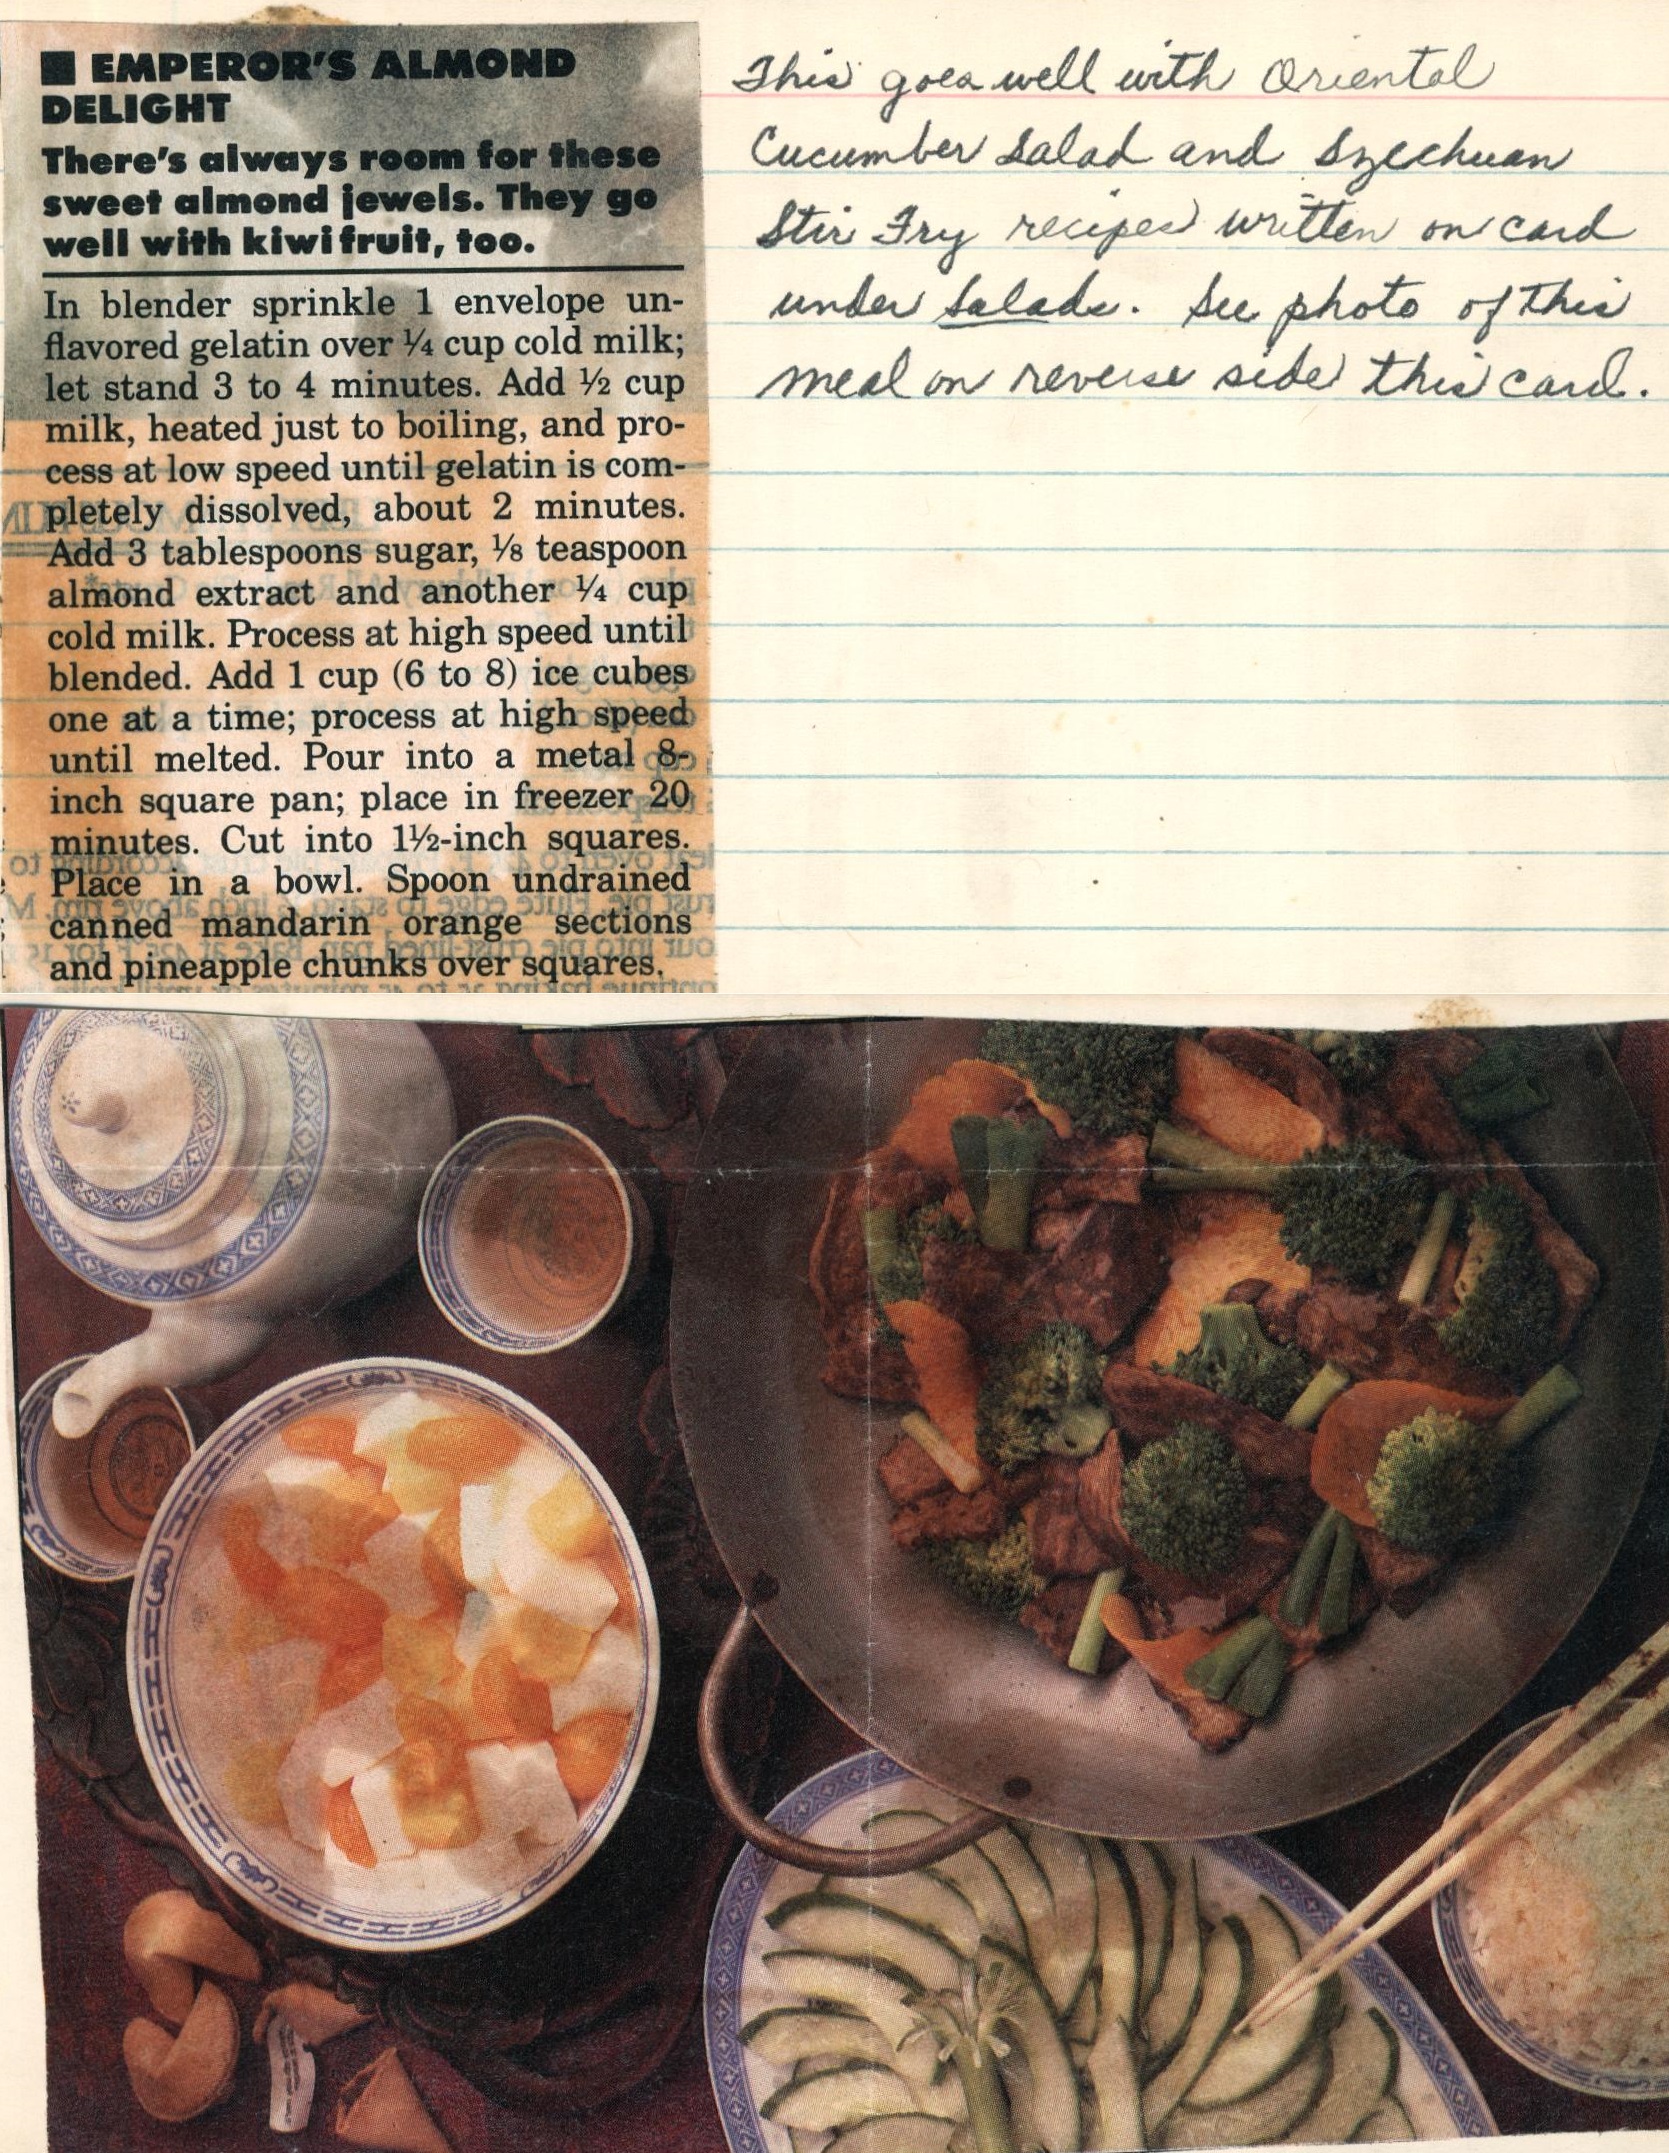 ■ EMPEROR'S ALMOND
DELIGHT
There's always room for these
sweet almond jewels. They go
well with kiwifruit, too.
In blender sprinkle 1 envelope un-
flavored gelatin over ¼ cup cold milk;
let stand 3 to 4 minutes. Add ½ cup
milk, heated just to boiling, and pro-
cess at low speed until gelatin is com-
pletely dissolved, about 2 minutes.
Add 3 tablespoons sugar, ⅛ teaspoon
almond extract and another ¼ cup
cold milk. Process at high speed until
blended. Add 1 cup (6 to 8) ice cubes
one at a time; process at high speed
until melted. Pour into a metal 8-
inch square pan; place in freezer 20
minutes. Cut into 1½-inch squares.
Place in a bowl. Spoon undrained
canned mandarin orange sections
and pineapple chunks over squares.
This goes well with Oriental
Cucumber Salad and Szechuan
Stir Fry recipes written on card
under Salads. See photo of this
meal on reverse side this card.